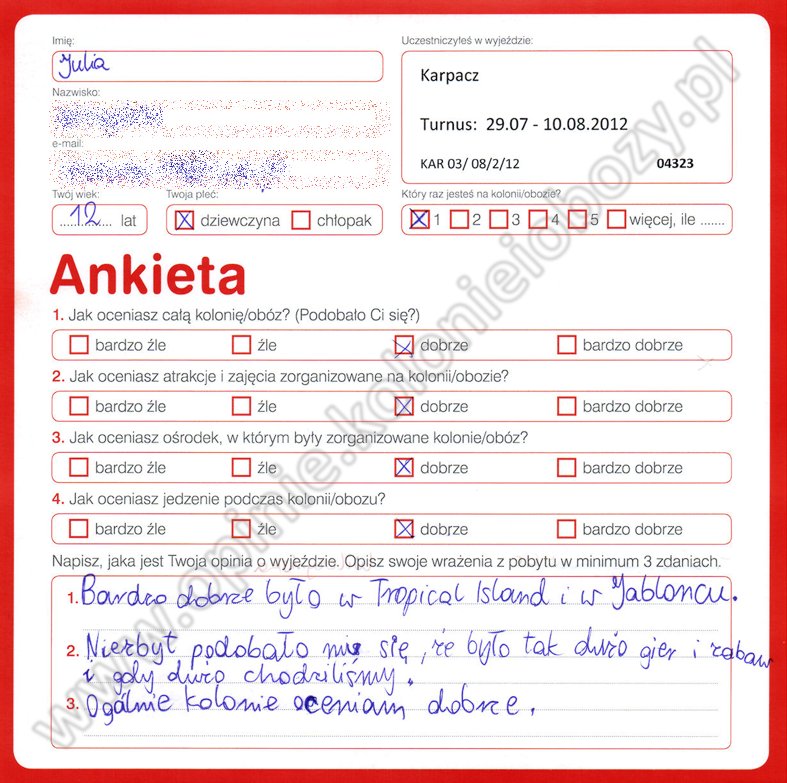 Imię:
Uczestniczyłeś w wyjeździe:
Julia
Karpacz
Nazwisko:
Turnus: 29.07 - 10.08.2012
e-mail:
KAR 03/ 08/2/12 04323
Twój wiek:
Twoja płeć:
Który raz jesteś na kolonii/obozie?
12 lat
dziewczyna chłopak
1 2 3 4 5 więcej, ile .......
Ankieta
1. Jak oceniasz całą kolonię/obóz? (Podobało Ci się?)
bardzo źle źle dobrze bardzo dobrze
2. Jak oceniasz atrakcje i zajęcia zorganizowane na kolonii/obozie?
bardzo źle źle dobrze bardzo dobrze
3. Jak oceniasz ośrodek, w którym były zorganizowane kolonie/obóz?
bardzo źle źle dobrze bardzo dobrze
4. Jak oceniasz jedzenie podczas kolonii/obozu?
bardzo źle źle dobrze bardzo dobrze
Napisz, jaka jest Twoja opinia o wyjeździe. Opisz swoje wrażenia z pobytu w minimum 3 zdaniach.
1. Bardzo dobrze było w Tropical Island i w Jabloncu.
2. Niezbyt podobało mi się, że było tak dużo gier i zabaw
i gdy dużo chodziliśmy.
3. Ogólnie kolonie oceniam dobrze.
www.opinie.kolonieiobozy.pl